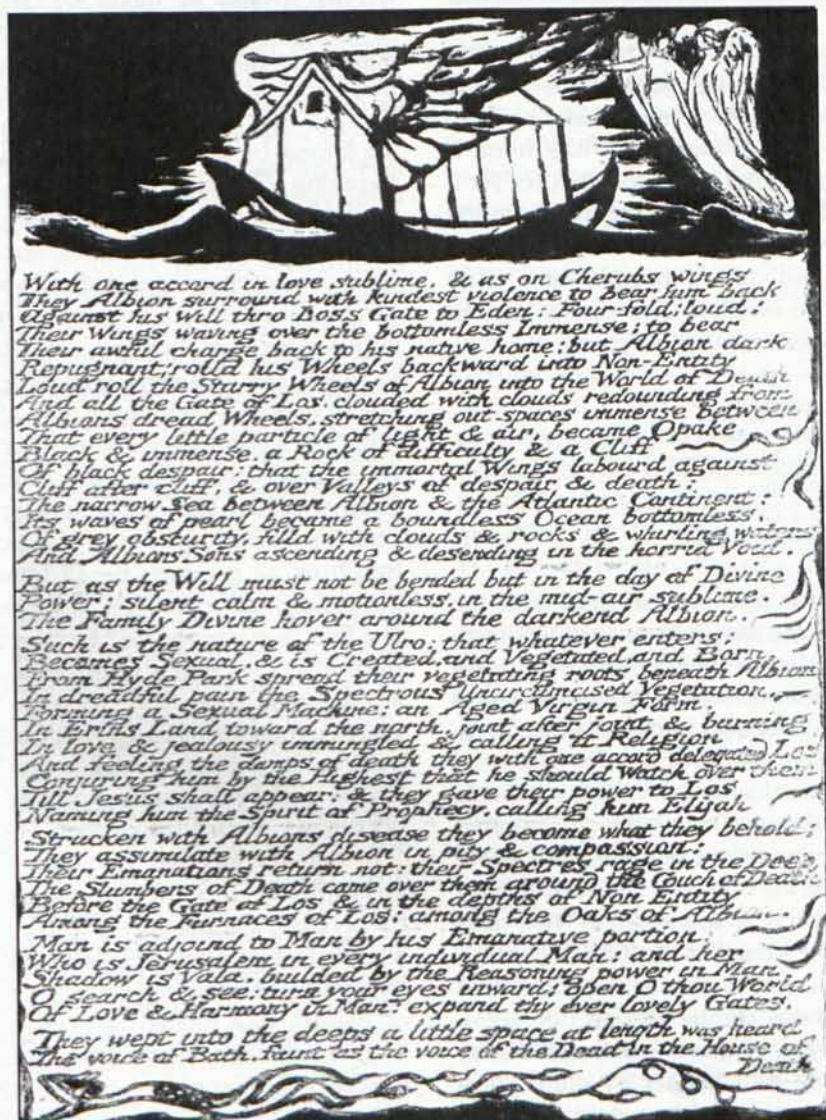 With one accord in love sublime, & as on Cherubs wings
They Albion surround with kindest violence to bear him back
Against his will thro Loss Gate to Eden: Four-fold; loud!
Their Wings waving over the bottomless Immense: to bear
Their awful charge back to his native home: but Albion dark,
Repugnant; rolld his Wheels backward into Non-Entity
Loud roll the Starry Wheels of Albion into the World of Death
And all the Gate of Los, clouded with clouds redounding from
Albions dread Wheels, stretching out spaces immense between
That every little particle of light & air, became Opake
Black & immense, a Rock of difficulty & a Cliff
Of black despair; that the immortal Wings labourd against
Cliff after cliff, & over Valleys of despair & death:
The narrow Sea between Albion & the Atlantic Continent:
Its waves of pearl became a boundless Ocean bottomless,
Of grey obscurity, filld with clouds & rocks & whirling waters
And Albions Sons ascending & desending in the horrid Void.
But as the Will must not be bended but in the day of Divine
Power: silent calm & motionless, in the mid-air sublime,
The Family Divine hover around the darkend Albion.
Such is the nature of the Ulro: that whatever enters:
Becomes Sexual, & is Created, and Vegetated, and Born.
From Hyde Park spread their vegetating roots beneath Albion
In dreadful pain the Spectrous Uncircumcised Vegetation.
Forming a Sexual Machine: an Aged Virgin Form.
In Erins Land toward the north, joint after joint & burning
In love & jealousy immingled & calling it Religion
And feeling the damps of death they with one accord delegated Los
Conjuring him by the Highest that he should Watch over them
Till Jesus shall appear: & they gave their power to Los
Naming him the Spirit of Prophecy, calling him Elijah
Strucken with Albions disease they become what they behold;
They assimilate with Albion in pity & compassion:
Their Emanations return not: their Spectres rage in the Deep
The Slumbers of Death came over them around the Couch of Death
Before the Gate of Los & in the depths of Non Entity
Among the Furnaces of Los: among the Oaks of Albion.
Man is adjoind to Man by his Emanative portion:
Who is Jerusalem in every individual Man: and her
Shadow is Vala, builded by the Reasoning power in Man
O search & see: turn your eyes inward: open O thou World
Of Love & Harmony in Man: expand thy ever lovely Gates.
They wept into the deeps a little space at length was heard
The voice of Bath, faint as the voice of the Dead in the House of
Death